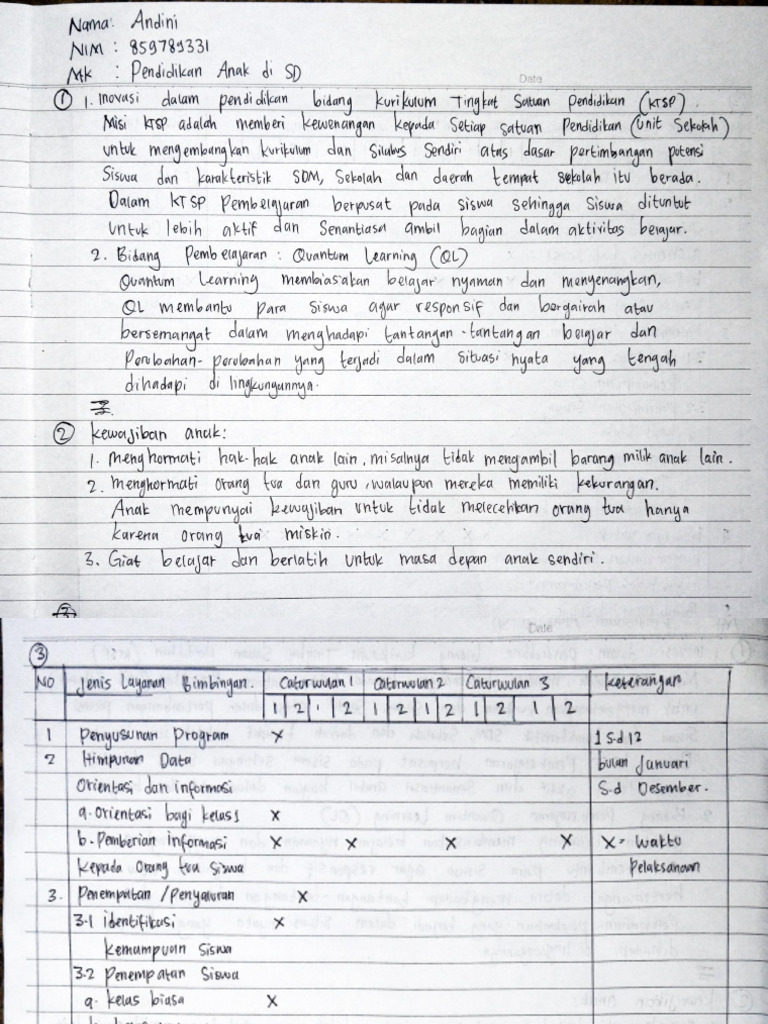 Nama : Andini
NIM : 859789331
MK : Pendidikan Anak di SD
Date
① 1. Inovasi dalam pendidikan bidang kurikulum Tingkat Satuan Pendidikan (KTSP).
Misi KTSP adalah memberi kewenangan kepada Setiap satuan Pendidikan (Unit Sekolah)
untuk mengembangkan kurikulum dan Silabus Sendiri atas dasar pertimbangan potensi
Siswa dan karakteristik SDM, Sekolah dan daerah tempat sekolah itu berada.
Dalam KTSP Pembelajaran berpusat pada siswa sehingga Siswa dituntut
Untuk lebih aktif dan Senantiasa ambil bagian dalam aktivitas belajar.
2. Bidang Pembelajaran : Quantum Learning (QL)
Quantum Learning membiasakan belajar nyaman dan menyenangkan,
QL membantu para Siswa agar responsif dan bergairah atau
bersemangat dalam menghadapi tantangan-tantangan belajar dan
Perubahan-perubahan yang terjadi dalam situasi nyata yang tengah
dihadapi di lingkungannya.
② Kewajiban anak:
1. Menghormati hak-hak anak lain, misalnya tidak mengambil barang milik anak lain.
2. Menghormati orang tua dan guru, walaupun mereka memiliki kekurangan.
Anak mempunyai kewajiban untuk tidak melecehkan orang tua hanya
karena orang tua miskin.
3. Giat belajar dan berlatih untuk masa depan anak sendiri.
Date
③
NO Jenis Layanan Bimbingan. Caturwulan 1 Caturwulan 2 Caturwulan 3 Keterangan
1 2 1 2 1 2 1 2 1 2 1 2
1 Penyusunan Program X 1 S.d 12
2 Himpunan Data bulan Januari
Orientasi dan informasi S.d Desember.
a. Orientasi bagi kelas 1 X
b. Pemberian informasi X X X X X = Waktu
Kepada Orang tua siswa Pelaksanaan
3. Penempatan / Penyaluran X
3.1 identifikasi X
Kemampuan Siswa
3.2 Penempatan Siswa
a. kelas biasa X